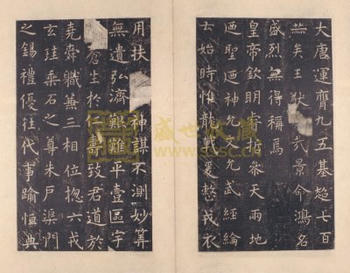 大唐運膺九五基超七百
無得稱焉
皇帝欽明睿哲參天兩地
迺聖迺神允文允武經綸
云始時惟龍戰爰整戎衣
用扶 神謀不測妙筭
無遺弘濟艱難平壹區宇
蒼生於仁壽致君道於
堯舜職兼三相位揔六戎
玄珪乘石之尊朱戶渠門
之錫禮優往代事踰恒典